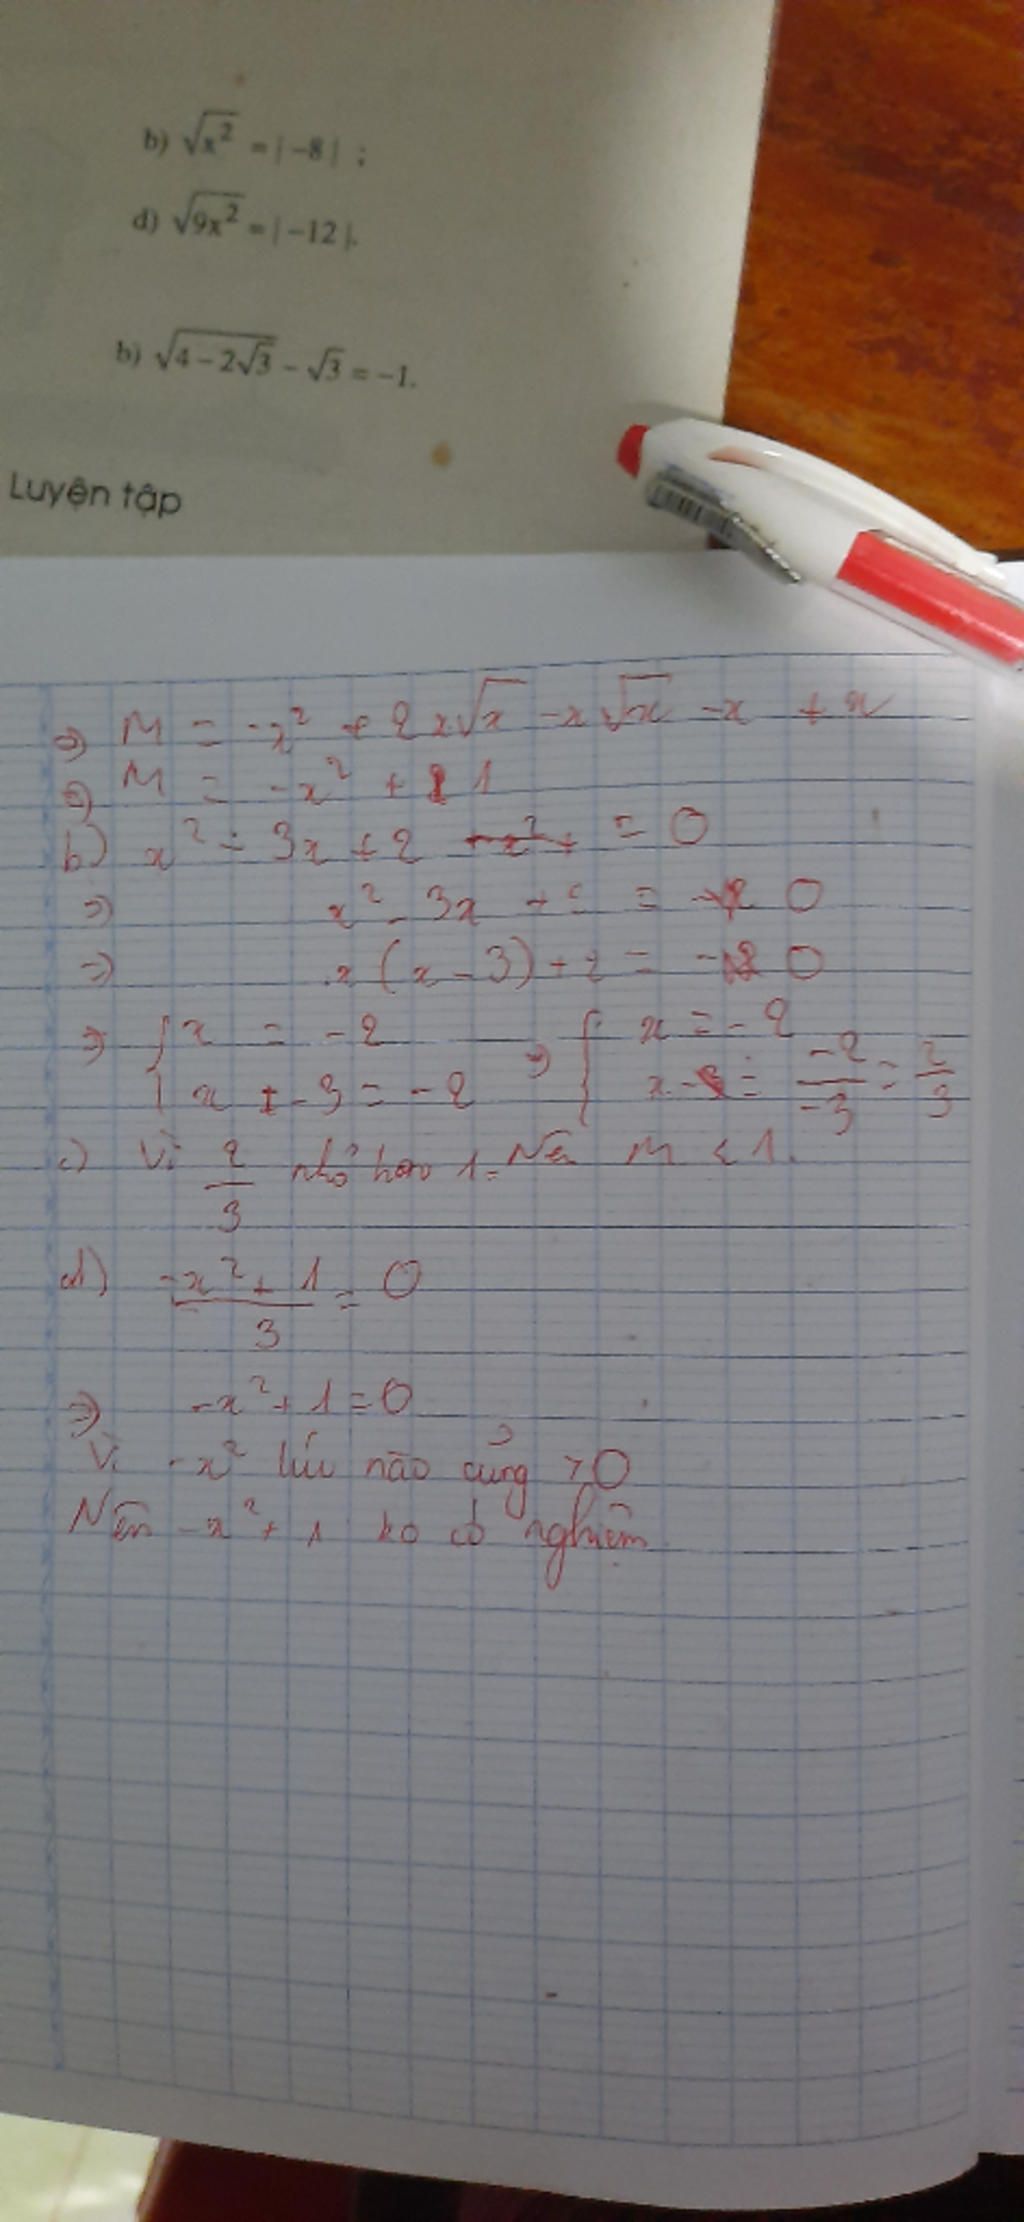 b) √x² = |−8| ;
d) √9x² = |−12|.
b) √4 − 2√3 − √3 = −1.
Luyện tập
=> M = -x² + 2x√x - x√x - x + x
=> M = -x² + 1
b) x² - 3x + 2 = 0
=> x² - 3x + 2 = 0
=> x(x - 3) + 2 = 0
=> { x = -2 => { x = -2
x + -3 = -2 x = -2/-3 = 2/3
c) Vì 2/3 nhỏ hơn 1. Nên M < 1.
d) -x² + 1 / 3 = 0
=> -x² + 1 = 0
Vì -x² lúc nào củng >0
Nên -x² + 1 ko có nghiệm